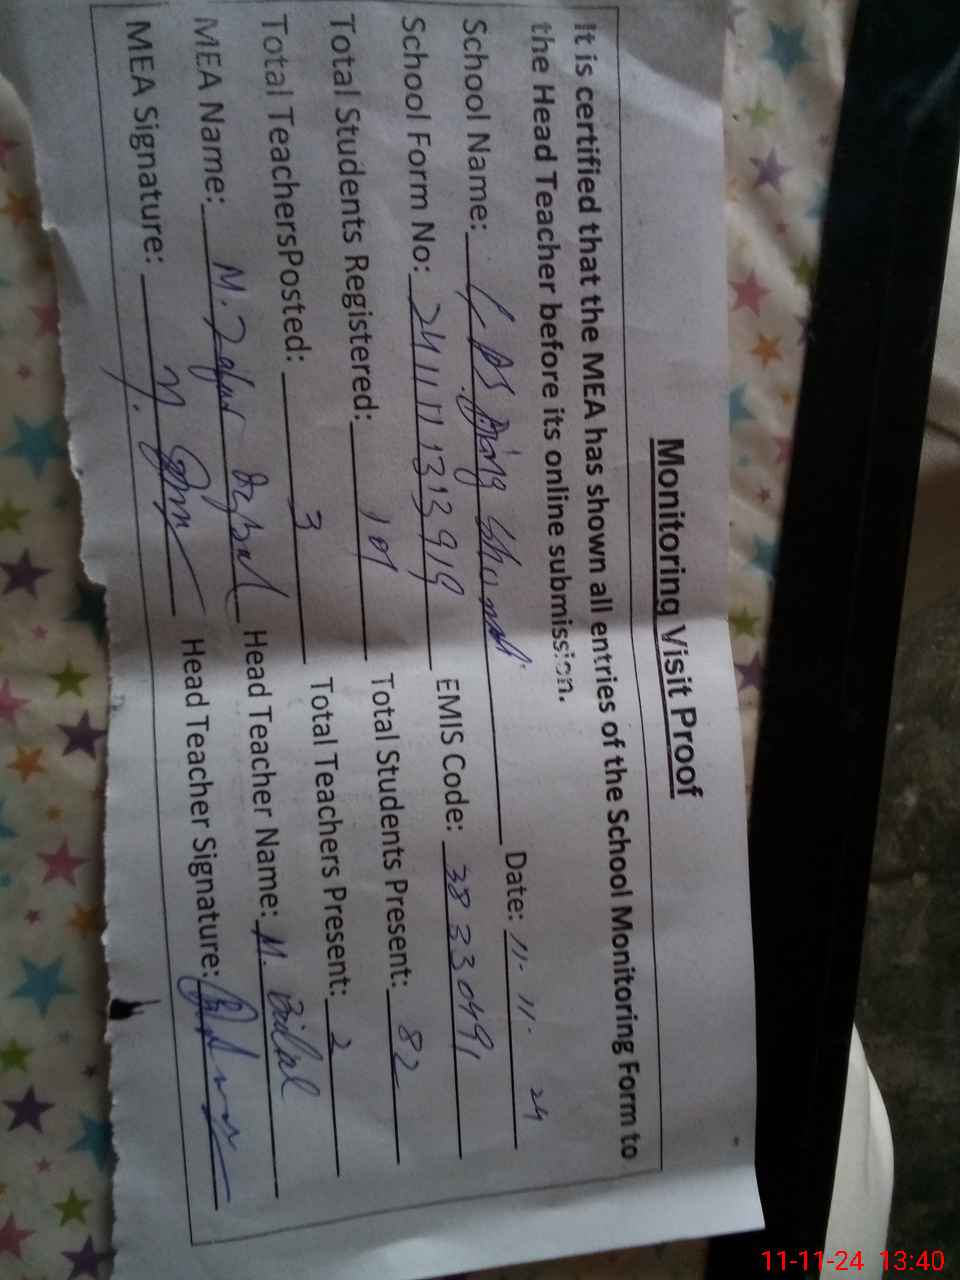 Monitoring Visit Proof
It is certified that the MEA has shown all entries of the School Monitoring Form to
the Head Teacher before its online submission.
School Name: Date: 11-11-24
School Form No: 2411111313919 EMIS Code: 38330491
Total Students Registered: 101 Total Students Present: 82
Total TeachersPosted: 3 Total Teachers Present: 2
MEA Name: M. Zafar Iqbal Head Teacher Name: M. Bilal
MEA Signature: Head Teacher Signature:
11-11-24 13:40